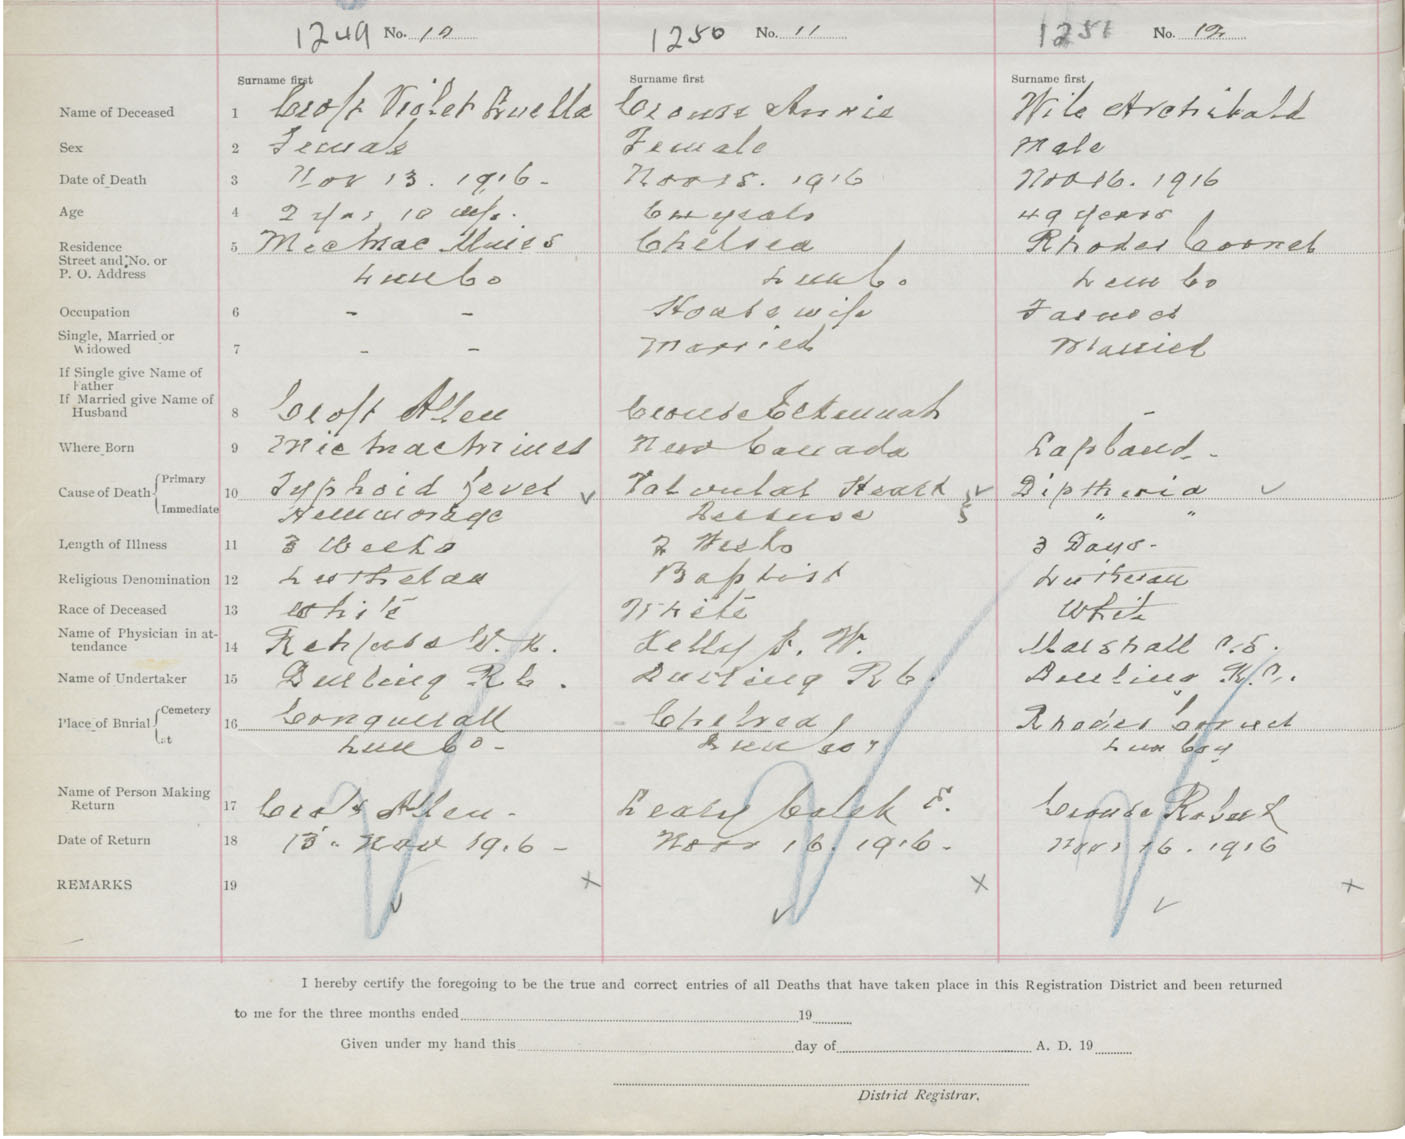 1249 No. 10 1250 No. 11 1251 No. 12
Surname first Surname first Surname first
Name of Deceased 1 Croft Violet Luella Crouse Annie Wile Archibald
Sex 2 Female Female Male
Date of Death 3 Nov 13. 1916- Nov 15. 1916 Nov 16. 1916
Age 4 2 yrs 10 years 49 years
Residence 5 Micmac Mines Chelsea Rhodes Corner
Street and No. or
P. O. Address Lun Co Lun Co. Lun Co
Occupation 6 - - House wife Farmer
Single, Married or
Widowed 7 - - Married Married
If Single give Name of
Father
If Married give Name of
Husband 8 Croft Allen Crouse -
Where Born 9 Micmac Mines New Canada Lapland -
Cause of Death { Primary 10 Typhoid fever Heart Diptheria
Immediate Hemmorage Disease " "
Length of Illness 11 3 Weeks 2 Weeks 3 Days-
Religious Denomination 12 Lutheran Baptist Lutheran
Race of Deceased 13 White White White
Name of Physician in at-
tendance 14 Rehfuss W. N. Kelly J. W. Marshall
Name of Undertaker 15 R C. R C.
Place of Burial { Cemetery 16 Conquerall Chelsea Rhodes Corner
at Lun Co- Lun Coy Lun Coy
Name of Person Making
Return 17 Croft Allen- Leary Calek E. Crouse Robert
Date of Return 18 13. Nov 1916- Nov 16. 1916- Nov 16. 1916
REMARKS 19 x x x
I hereby certify the foregoing to be the true and correct entries of all Deaths that have taken place in this Registration District and been returned
to me for the three months ended 19
Given under my hand this day of A. D. 19
District Registrar.